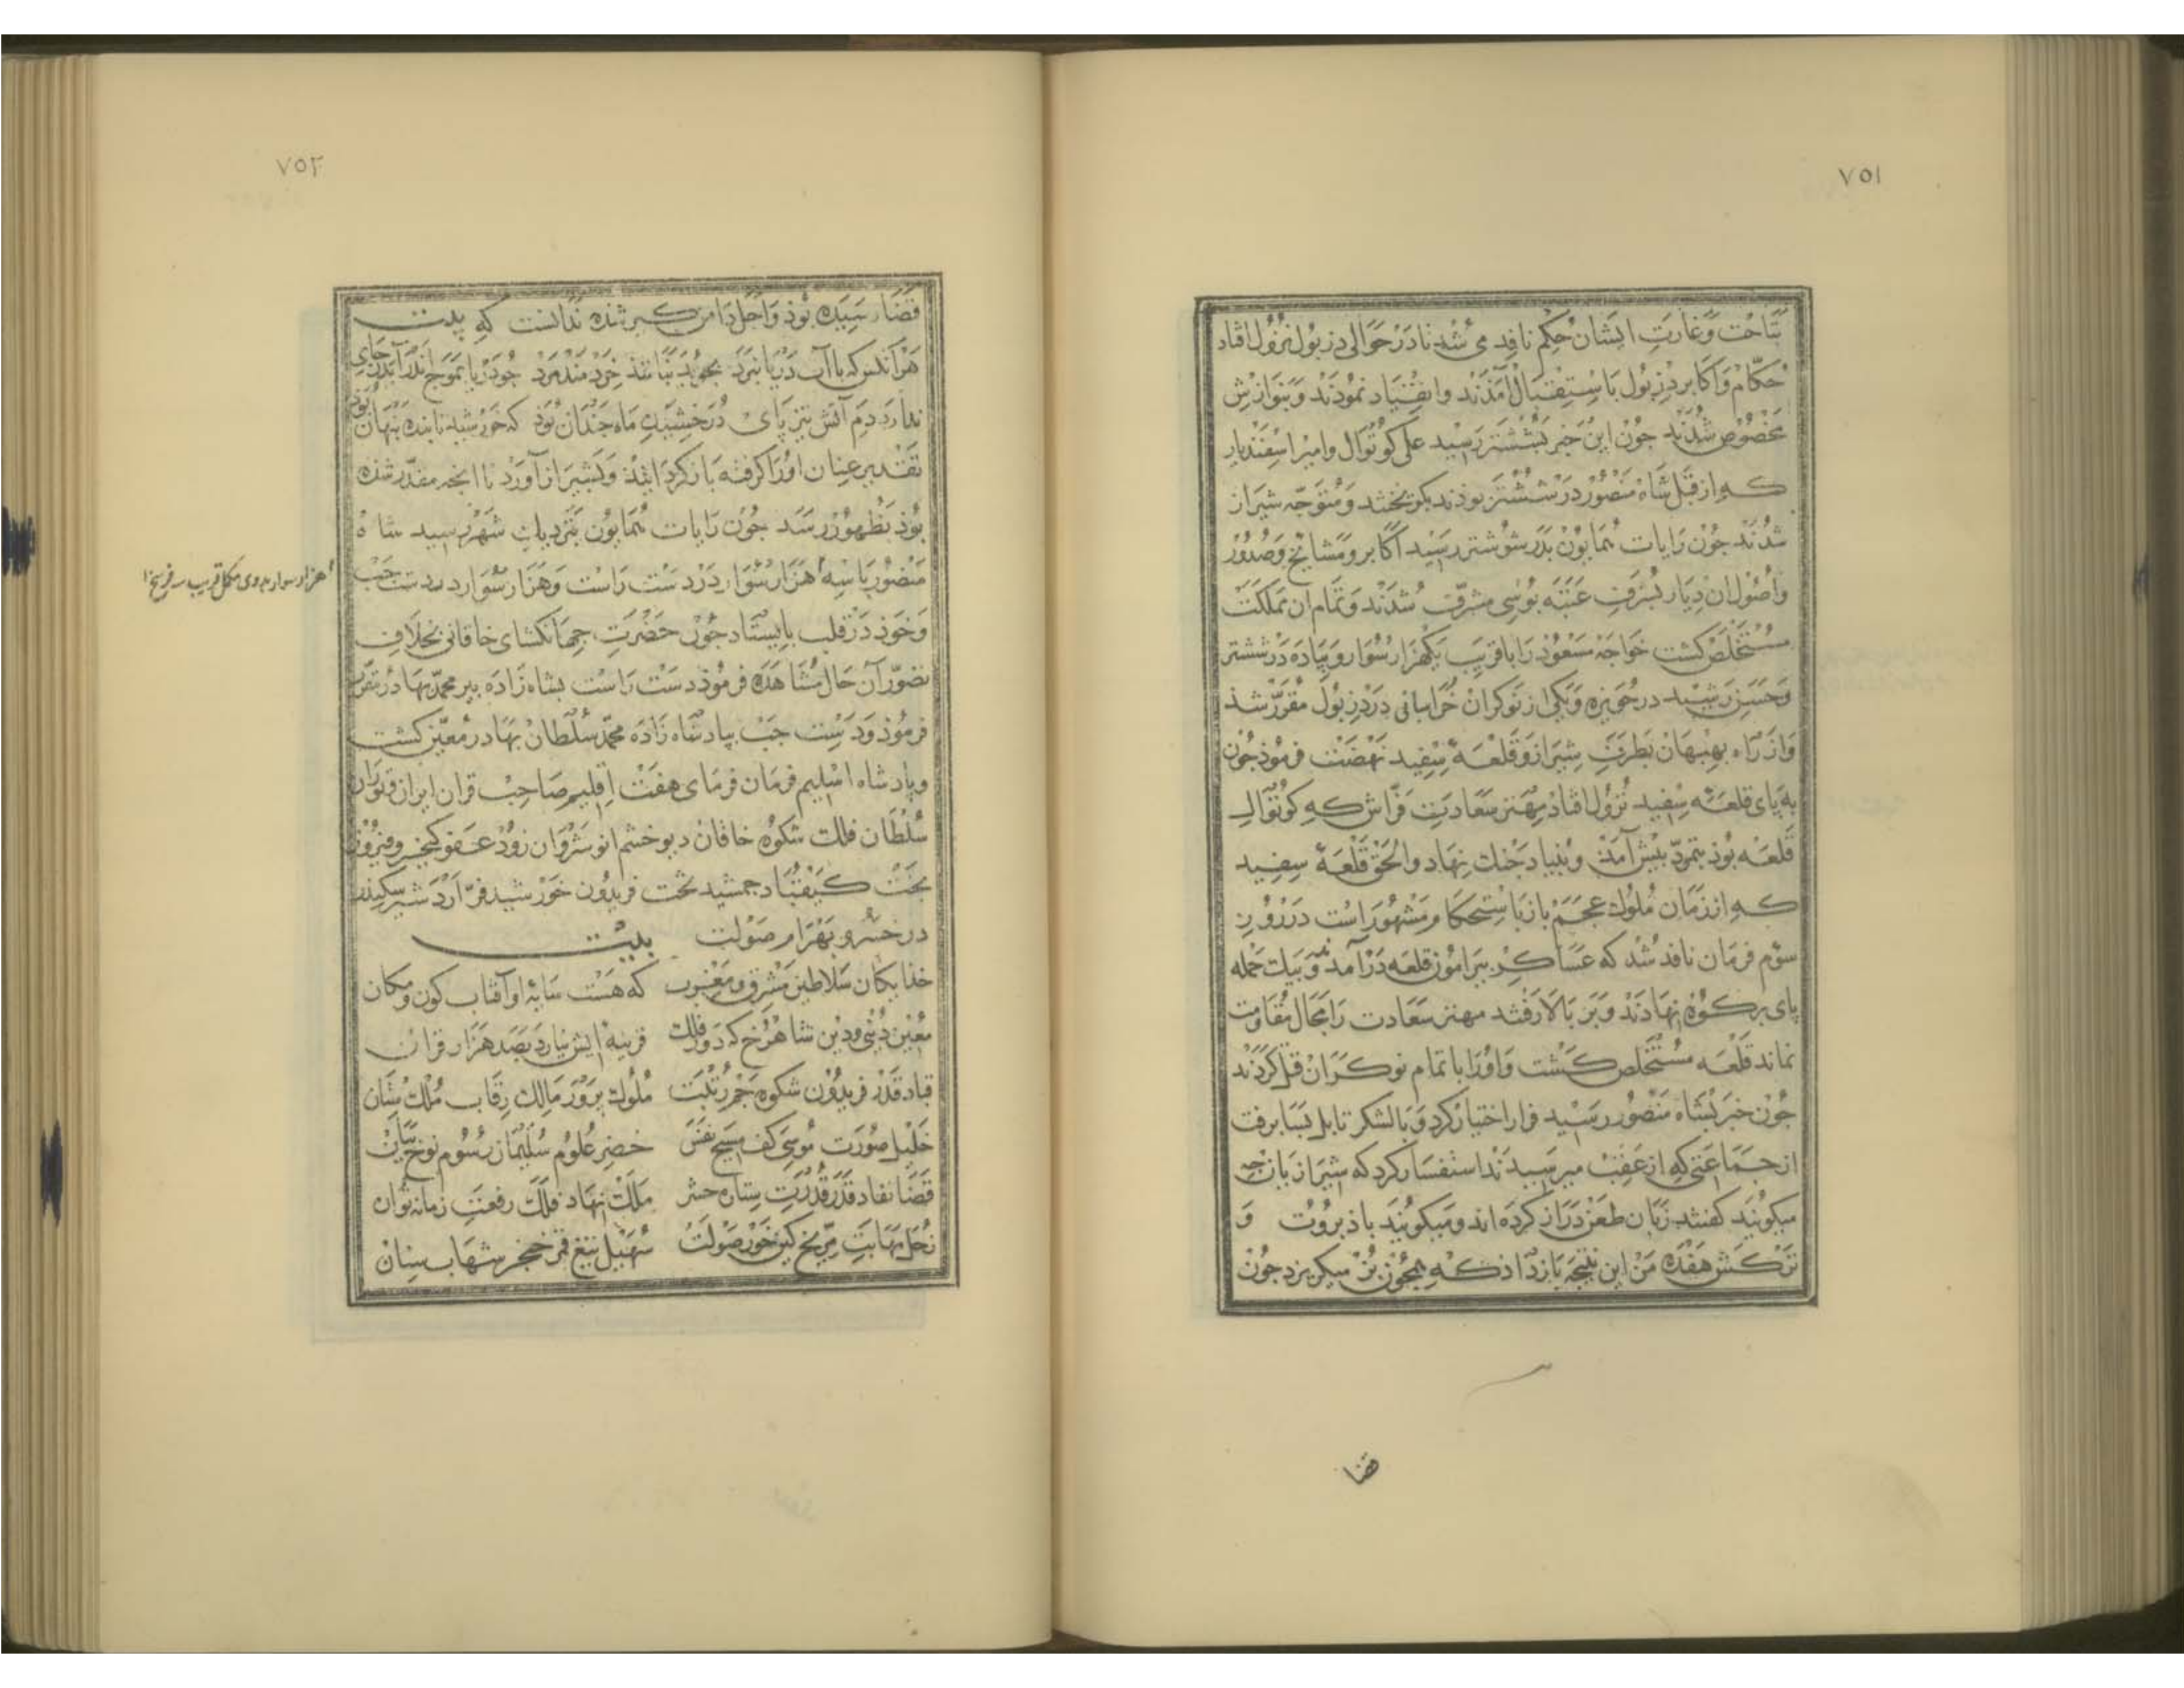 ٧٥١
بتاخت و غارت ایشان حکم نافد می شد تا در حوالی دزبول نزول افتاد
حکام و اکابر دزبول باستقبال آمذند و انقیاد نمودند و بنوازش
مخصوص شدند جون این خبر بششتر رسید علی کوتوال و امیر اسفندیار
که از قبل شاه منصور در ششتر بوذند بکریختند و متوجه شیراز
شدند جون رایات همایون بدر شوشتر رسید اکابر و مشایخ و صدور
و اصول ان دیار بشرف عتبه بوسی مشرف شدند و تمام ان مملکت
مستخلص کشت خواجه مسعوذ را با قریب یکهزار سوار و پیاده در ششتر
و حسن رشید در حویزه و یکی از نوکران خراسانی در دزبول مقرر شذ
و از راه بهبهان بطرف شیراز و قلعه سفید نهضت فرموذ جون
به پای قلعه سفید نزول افتاد مهتر سعادت فراش که کوتوال
قلعه بوذ بتمرد بیش آمذ و بنیاد جنک نهاد والحق قلعه سفید
که از زمان ملوک عجم باز باستحکام مشهور است در روز
سوم فرمان نافد شد که عساکر بیرامون قلعه درآمدند و بیک حمله
پای بر کوه نهادند و بر بالا رفتند مهتر سعادت را مجال مقاومت
نماند قلعه مستخلص کشت و او را با تمام نوکران قتل کردند
جون خبر بشاه منصور رسید فرار اختیار کرد و با لشکر تا بل بسا برفت
از جماعتی که از عقب میرسیدند استفسار کرد که شیرازیان جه
میکویند کفتند زبان طعن دراز کرده اند و میکویند باذ بروت و
ترکش هفده من این نتیجه باز داذ که همجون بز میکریزد جون
قضا
٧٥٢
قضا رسیده بوذ و اجل دامن کیر شذه ندانست که بیت
هر آنکس که با آب دریا نبرد بجوید نباشذ خردمند مرد جو دریا بموج اندر آید ز جای
ندارد دم آتش تیز پای درخشیدن ماه جندان بوذ که خورشید تابنده بنهان بوذ
تقدیر عنان او را کرفته باز کردانید و بشیراز آورد تا انجه مقدر شذه
بوذ بظهور رسد جون رایات همایون بنزدیک شهر رسید شاه
منصور با سه هزار سوار در دست راست و هزار سوار در دست جب
و خوذ در قلب بایستاد جون حضرت جهانکشای خاقانی بخلاف
تصور آن حال مشاهده فرموذ دست راست بشاه زاده پیر محمد بهادر مقرر
فرموذ و دست جب بپادشاه زاده محمد سلطان بهادر معین کشت
و پادشاه اسلیم فرمان فرمای هفت اقلیم صاحب قران ایران و توران
سلطان فلک شکوه خاقان دیو خشم انوشروان زود عفو کیخسرو فیروز
بخت کیقباد جمشید تخت فریدون خورشید فر اردشیر سکندر
در خسرو بهرام صولت بیت
خذایکان سلاطین مشرق و مغرب که هست سایه او آفتاب کون و مکان
معین دینی و دین شاهرخ که دور فلک قرینه ایش نیارد بصد هزار قران
قباد قدر فریدون شکوه جم رتبت ملوک برور مالک رقاب ملک ستان
خلیل صورت موسی کف مسیح نفس خضر علوم سلیمان رسوم نوح بیان
قضا نفاد قدر قدرت ستاره حشر ملک نهاد فلک رفعت زمانه توان
زحل مهابت مریخ کین خور صولت سهیل تیغ قمر خنجر شهاب سنان
هزار سوار